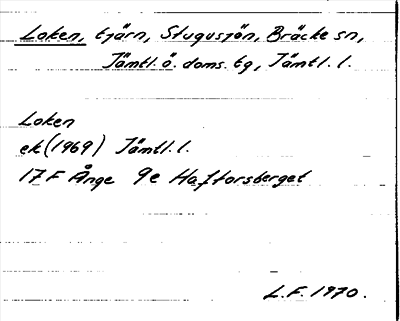 Loken, tjärn, Stugusjön, Bräcke sn,
Jämtl. ö. doms. tg, Jämtl. l.
Loken
ek (1969) Jämtl. l.
17 F Ånge 9e Haftorsberget
L.F. 1970.